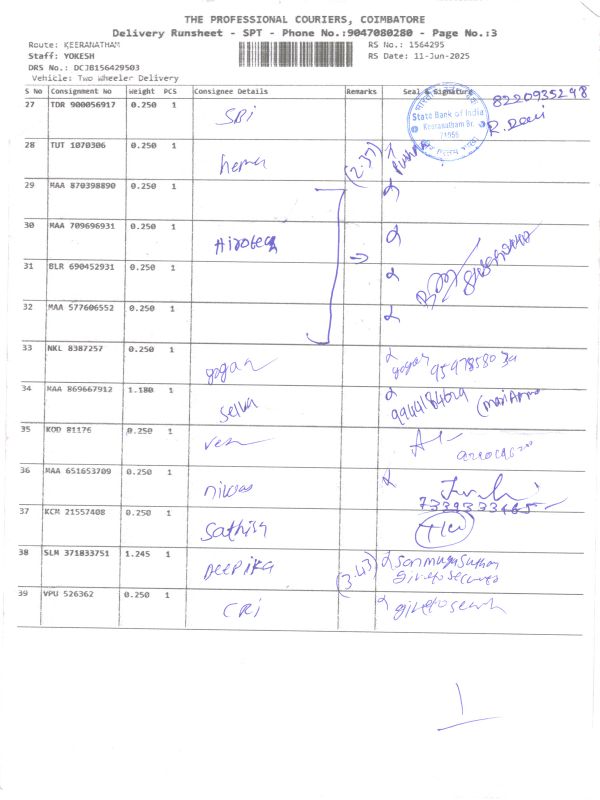 THE PROFESSIONAL COURIERS, COIMBATORE
Delivery Runsheet - SPT - Phone No.:9047080280 - Page No.:3
Route: KEERANATHAM RS No.: 1564295
Staff: YOKESH RS Date: 11-Jun-2025
DRS No.: DCJB156429503
Vehicle: Two Wheeler Delivery
S No Consignment No Weight PCS Consignee Details Remarks Seal & Signature
27 TDR 900056917 0.250 1 SBI State Bank of India Keeranatham Br. 8220935298
R. Devi
28 TUT 1070306 0.250 1 hema (2.37)
29 MAA 870398890 0.250 1
30 MAA 709696931 0.250 1
31 BLR 690452931 0.250 1
32 MAA 577606552 0.250 1
33 NKL 8387257 0.250 1 yogan yogan
34 MAA 869667912 1.180 1 Selva
35 KOD 81176 0.250 1
36 MAA 651653709 0.250 1 niwas
7339333465
37 KCM 21557408 0.250 1 Sathish
38 SLM 371833751 1.245 1 Deepika (3.43)
39 VPU 526362 0.250 1 CRI